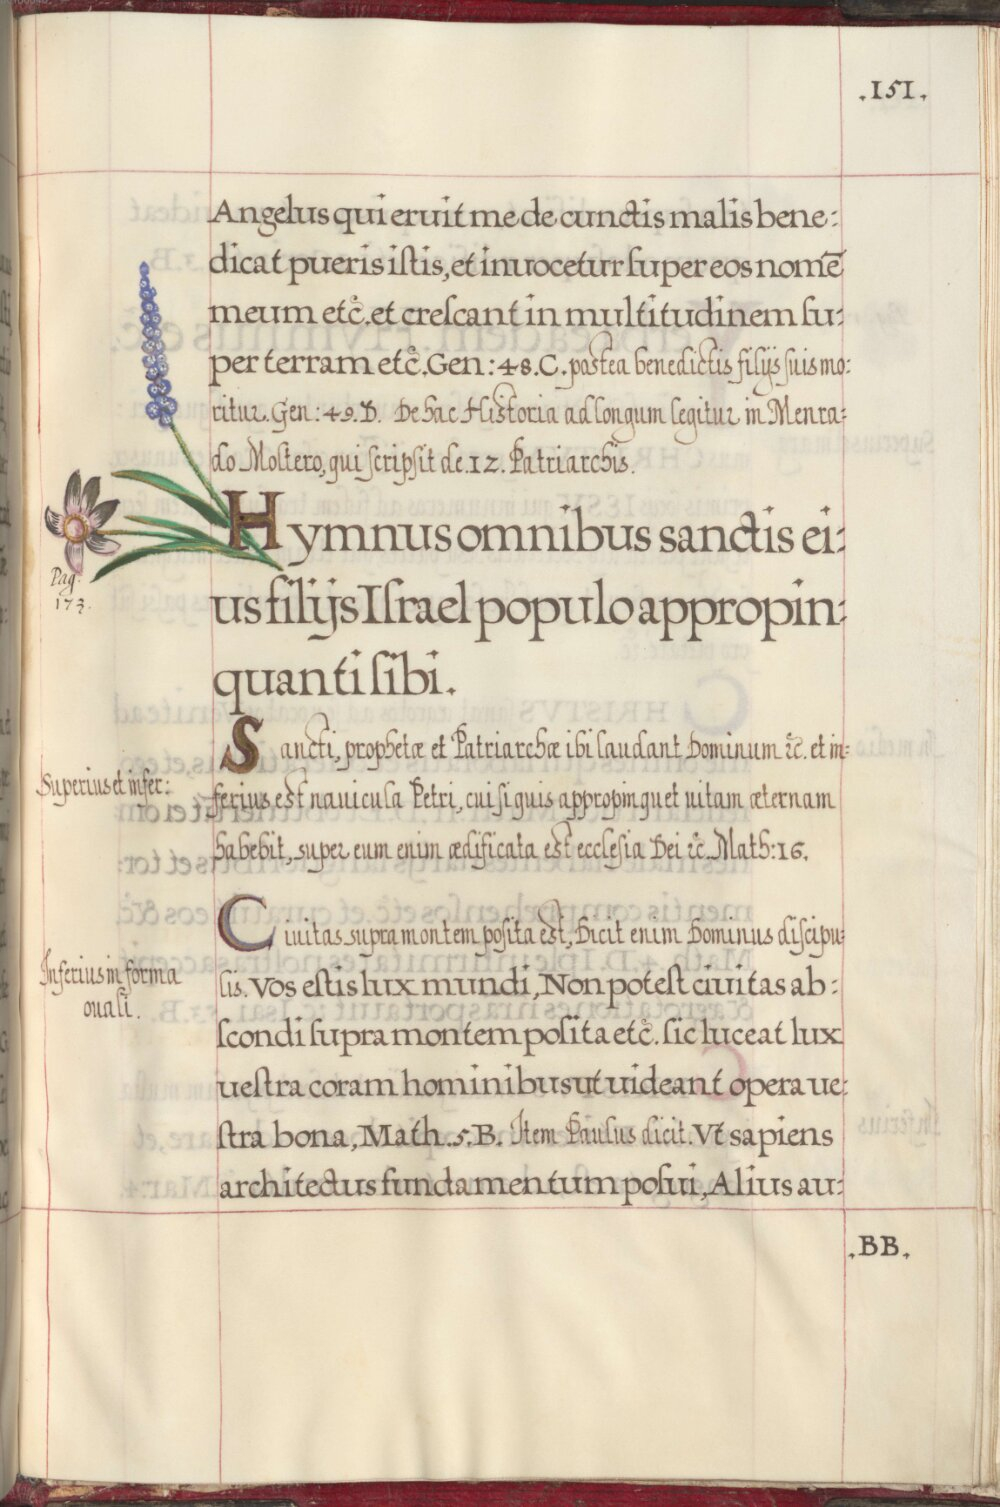 .151.
Angelus qui eruit me de cunctis malis bene:
dicat pueris istis, et inuocetur super eos nomē
meum etc̃. et crescant in multitudinem su:
per terram etc̃. Gen: 48. C. postea benedictis filijs suis mo:
ritur. Gen: 49. D. De hac Historia ad longum legitur in Menra:
do Moltero, qui scripsit de 12. Patriarchis.
Hymnus omnibus sanctis ei:
us filijs Israel populo appropin:
quanti sibi.
Pag.
173.
Sancti, prophetæ et Patriarchæ ibi laudant Dominum ⁊c̃. et in:
Superius et infer:
ferius est nauicula Petri, cui si quis appropinquet uitam æternam
habebit, super eum enim ædificata est ecclesia Dei ⁊c̃. Math: 16.
Ciuitas supra montem posita est, Dicit enim Dominus discipu:
Inferius in forma
ouali.
lis. Vos estis lux mundi, Non potest ciuitas ab:
scondi supra montem posita etc̃. sic luceat lux
uestra coram hominibus ut uideant opera ue:
stra bona, Math. 5. B. Item Paulus dicit. Vt sapiens
architectus fundamentum posui, Alius au:
.BB.